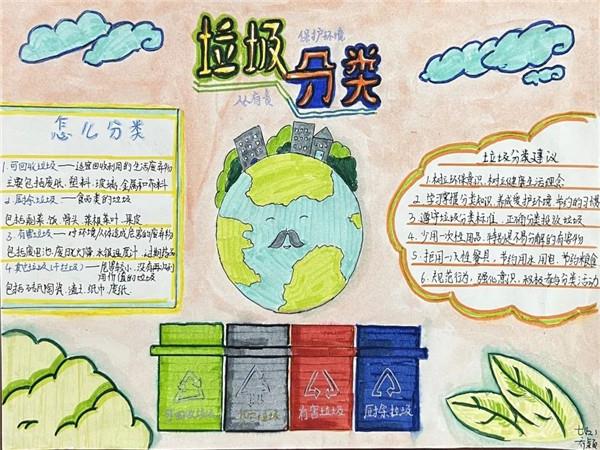 垃圾分类
保护环境
人人有责
怎么分类
1.可回收垃圾——适宜回收利用的生活废弃物
主要包括废纸、塑料、玻璃、金属和布料
2.厨余垃圾——食品类的垃圾
包括剩菜、饭、骨头、菜根菜叶、果皮
3.有害垃圾——对环境人体造成危害的废弃物
包括废电池、废日光灯、水银温度计、过期药品
4.其它垃圾(干垃圾)——危害较小、没有再次利
用价值的垃圾
包括砖瓦陶瓷、渣土、纸巾、废纸
垃圾分类建议
1.树立环保意识、树立健康生活观念
2.学习掌握分类知识、养成爱护环境、节约的习惯
3.遵守垃圾分类标准、正确分类投放垃圾
4.少用一次性用品、特别是不易分解的有害物
5.拒用一次性餐具、节约用水用电、节约粮食
6.规范行为、强化意识、积极参与分类活动
可回收垃圾
其它垃圾
有害垃圾
厨余垃圾